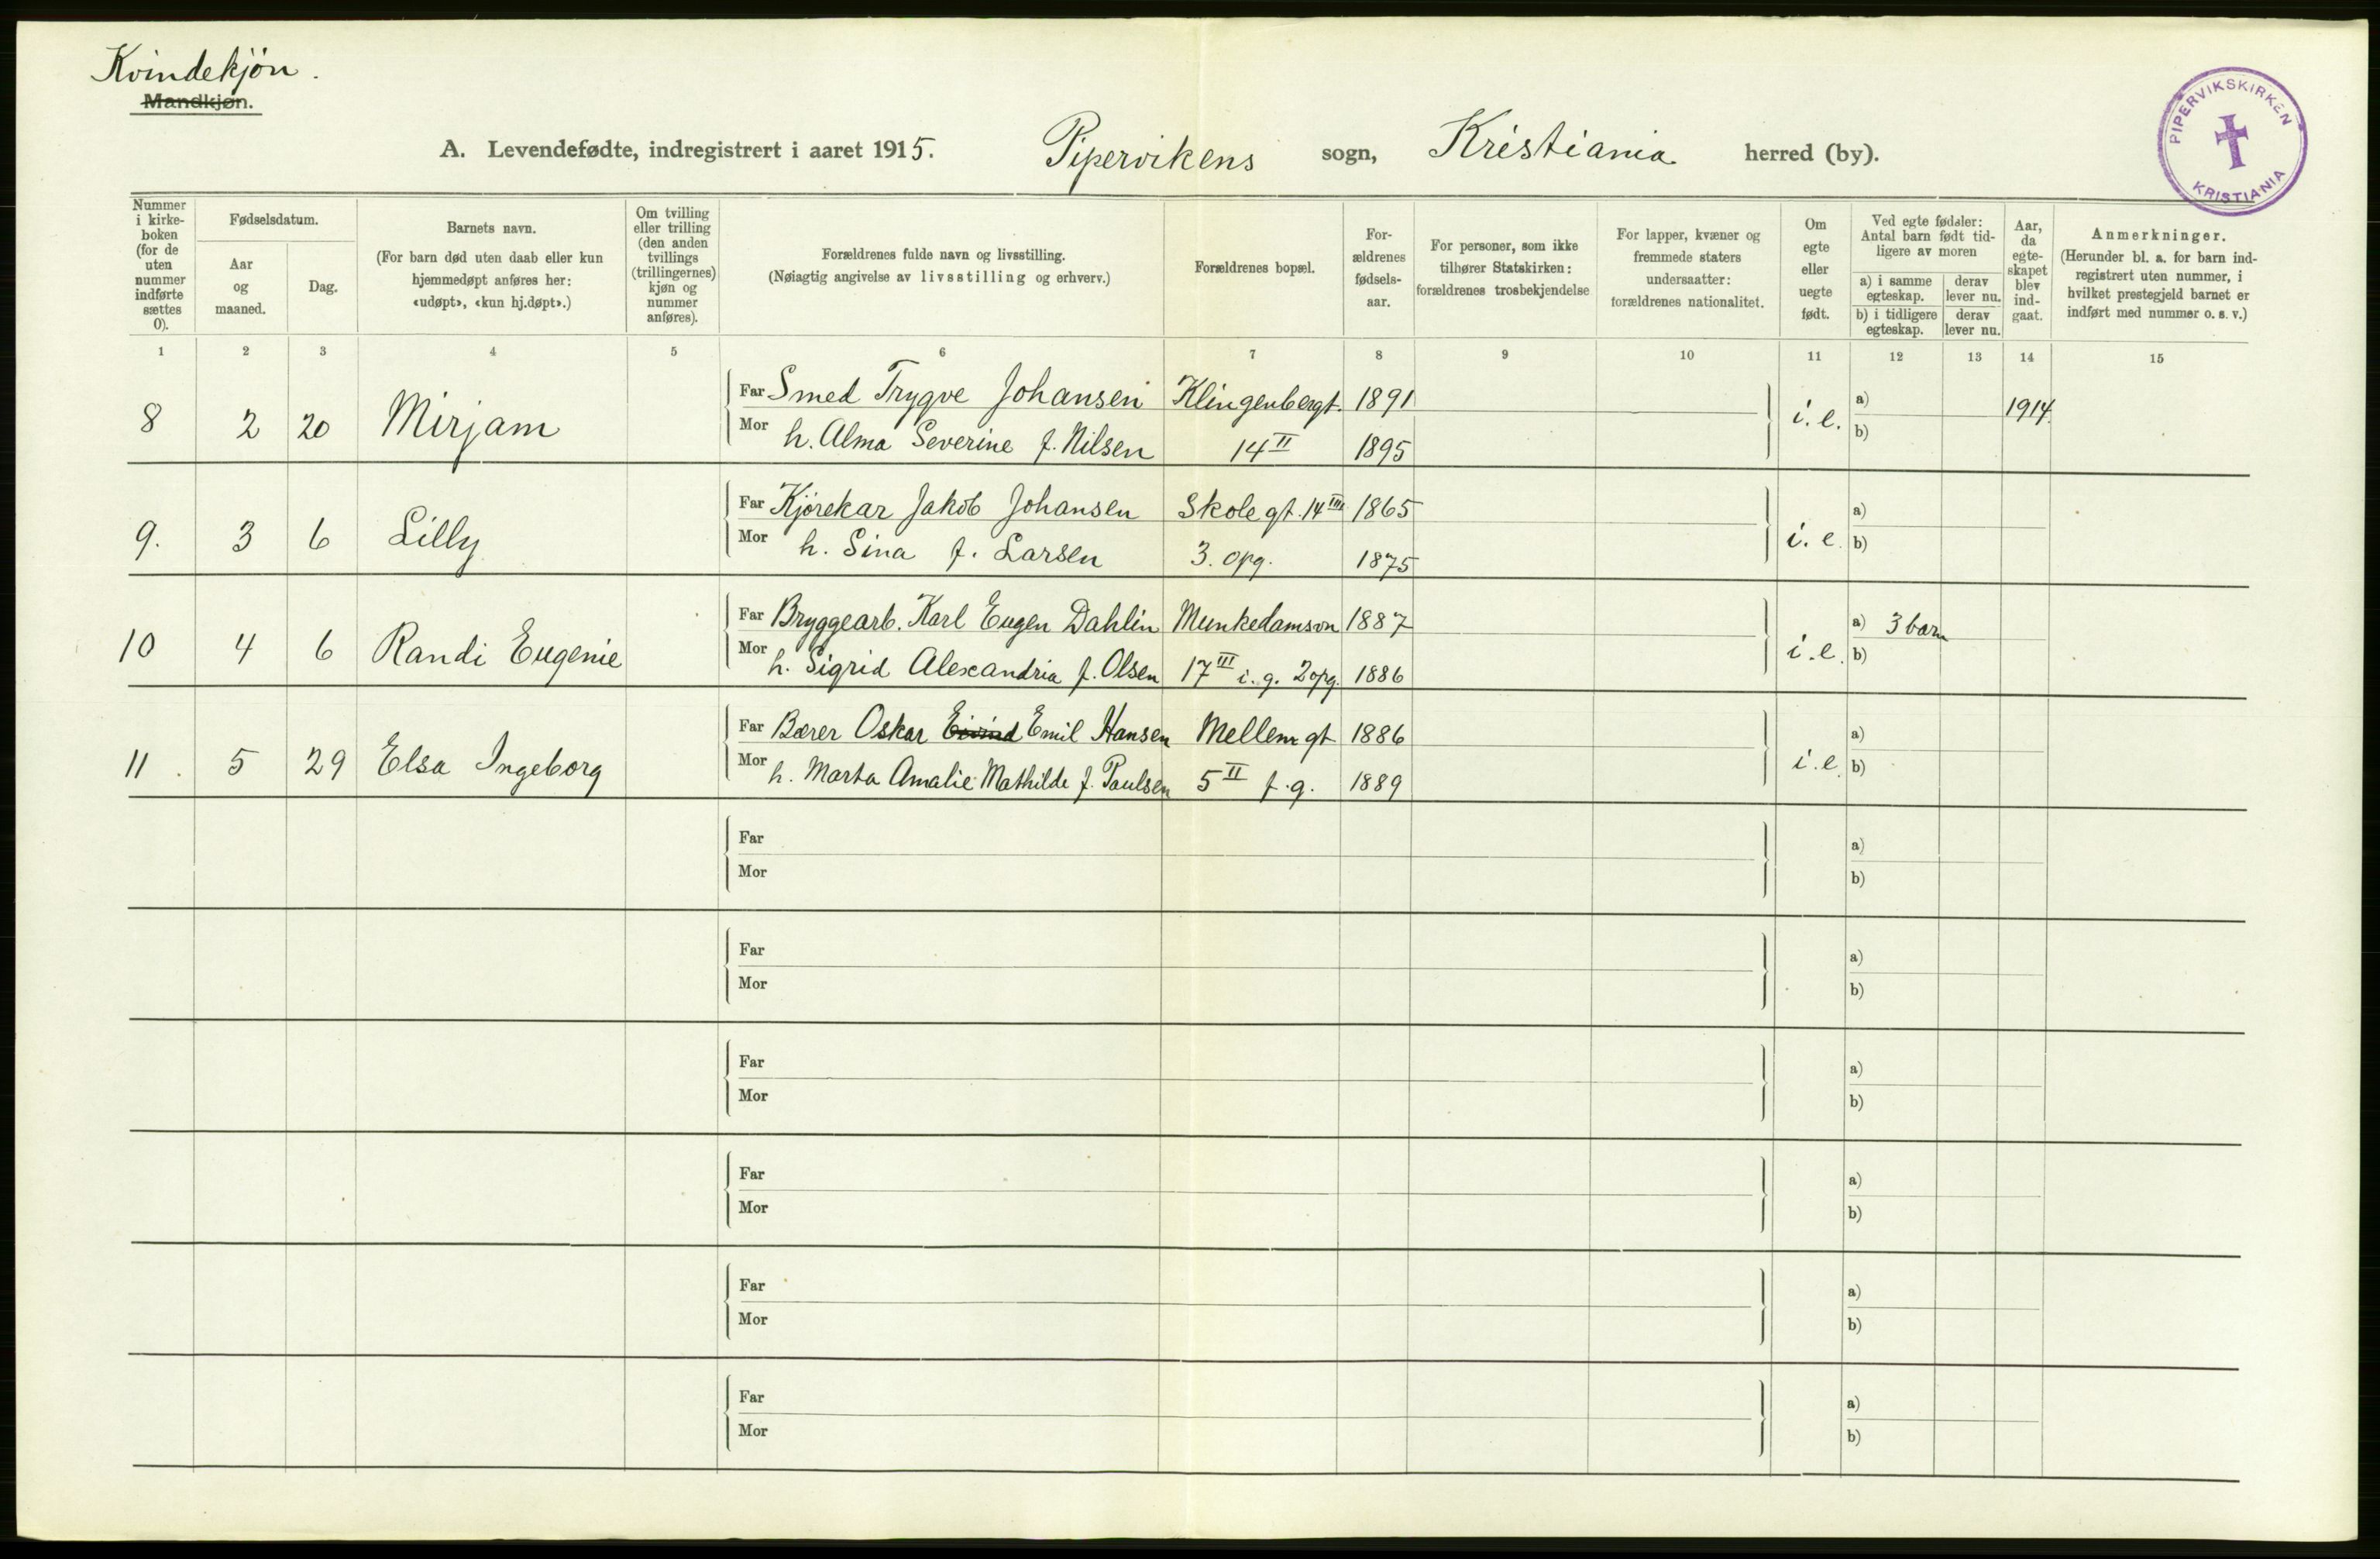 Kvindekjön.
Mandkjøn.
PIPERVIKSKIRKEN
KRISTIANIA
A. Levendefødte, indregistrert i aaret 1915. Pipervikens sogn, Kristiania herred (by).
Nummer i kirke-boken (for de uten nummer indførte sættes 0).
Fødselsdatum.
Aar og maaned.
Dag.
Barnets navn.
(For barn død uten daab eller kun hjemmedøpt anføres her: «udøpt», «kun hj.døpt».)
Om tvilling eller trilling (den anden tvillings (trillingernes) kjøn og nummer anføres).
Forældrenes fulde navn og livsstilling.
(Nøiagtig angivelse av livsstilling og erhverv.)
Forældrenes bopæl.
For-ældrenes fødsels-aar.
For personer, som ikke tilhører Statskirken: forældrenes trosbekjendelse
For lapper, kvæner og fremmede staters undersaatter: forældrenes nationalitet.
Om egte eller uegte født.
Ved egte fødsler: Antal barn født tid-ligere av moren
a) i samme egteskap.
derav lever nu.
b) i tidligere egteskap.
derav lever nu.
Aar, da egte-skapet blev ind-gaat.
Anmerkninger.
(Herunder bl. a. for barn ind-registrert uten nummer, i hvilket prestegjeld barnet er indført med nummer o. s. v.)
1 2 3 4 5 6 7 8 9 10 11 12 13 14 15
Far Smed Trygve Johansen Klingenbergt. 1891 a)
8 2 20 Mirjam i. e. 1914.
Mor h. Alma Severine f. Nilsen 14 II 1895 b)
Far Kjørekar Jakob Johansen Skolegt. 14 III 1865 a)
9. 3 6 Lilly i. e.
Mor h. Sina f. Larsen 3. opg. 1875 b)
Far Bryggearb. Karl Eugen Dahlin Munkedamsvn 1887 a) 3 barn
10 4 6 Randi Eugenie i. e.
Mor h. Sigrid Alexandria f. Olsen 17 III i. g. 2 opg. 1886 b)
Far Bærer Oskar Eivind Emil Hansen Mellemgt 1886 a)
11. 5 29 Elsa Ingeborg i. e.
Mor h. Marta Amalie Mathilde f. Paulsen 5 II f. g. 1889 b)
Far a)
Mor b)
Far a)
Mor b)
Far a)
Mor b)
Far a)
Mor b)
Far a)
Mor b)
Far a)
Mor b)